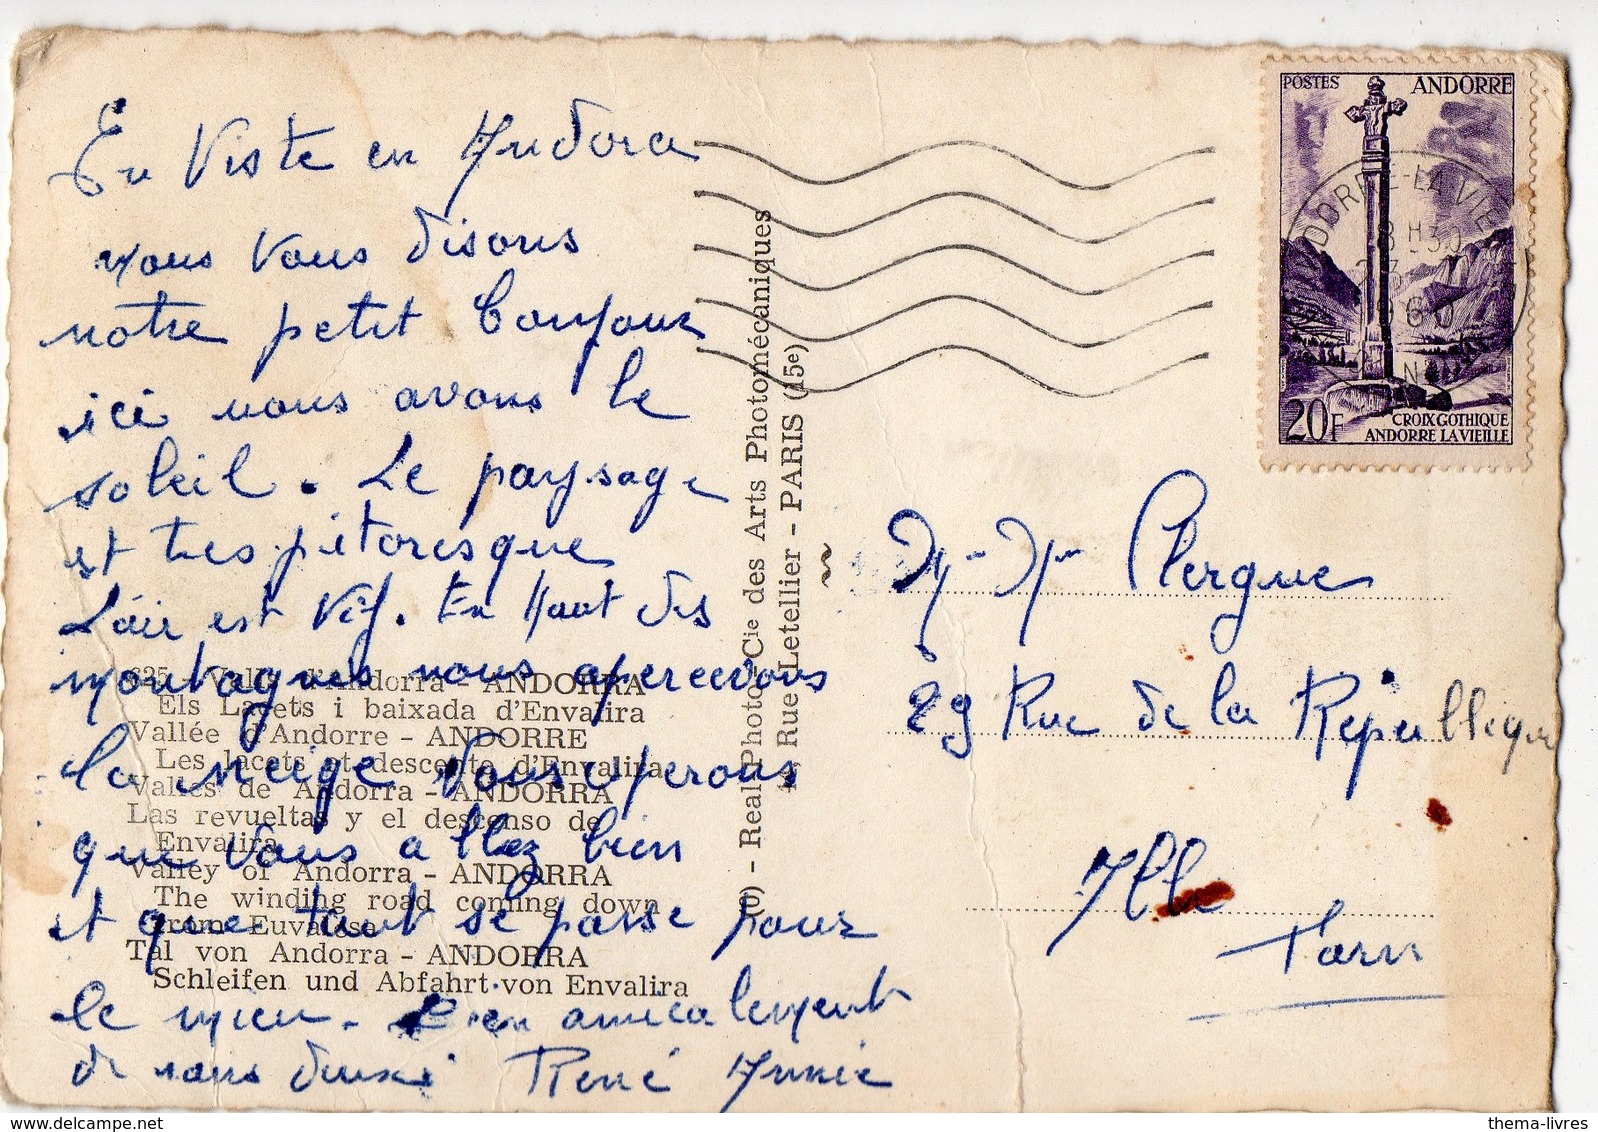 En Viste en Andora
nous vous disons
notre petit bonjour
ici nous avons le
soleil. Le paysage
et tres pitoresque
L'air est vif. En Haut des
montagnes nous apercevons
la neige. Vous esperons
que vous allez bien
et que tout se passe pour
le mieu. Bien amicalement
de nous deux René Annie
625 - Valls d'Andorra - ANDORRA
Els Lacets i baixada d'Envalira
Vallée d'Andorre - ANDORRE
Les lacets et descente d'Envalira
Valles de Andorra - ANDORRA
Las revueltas y el descenso de
Envalira
Valley of Andorra - ANDORRA
The winding road coming down
from Euvalosa
Tal von Andorra - ANDORRA
Schleifen und Abfahrt von Envalira
- Real-Photo - Cie des Arts Photomécaniques
Rue Letellier - PARIS (15e)
POSTES ANDORRE
20F
CROIX GOTHIQUE
ANDORRE LA VIEILLE
ANDORRE-LA-VIEILLE
18H30
1960
M-Mme Clergue
29 Rue de la République
Albi
Tarn
thema-livres